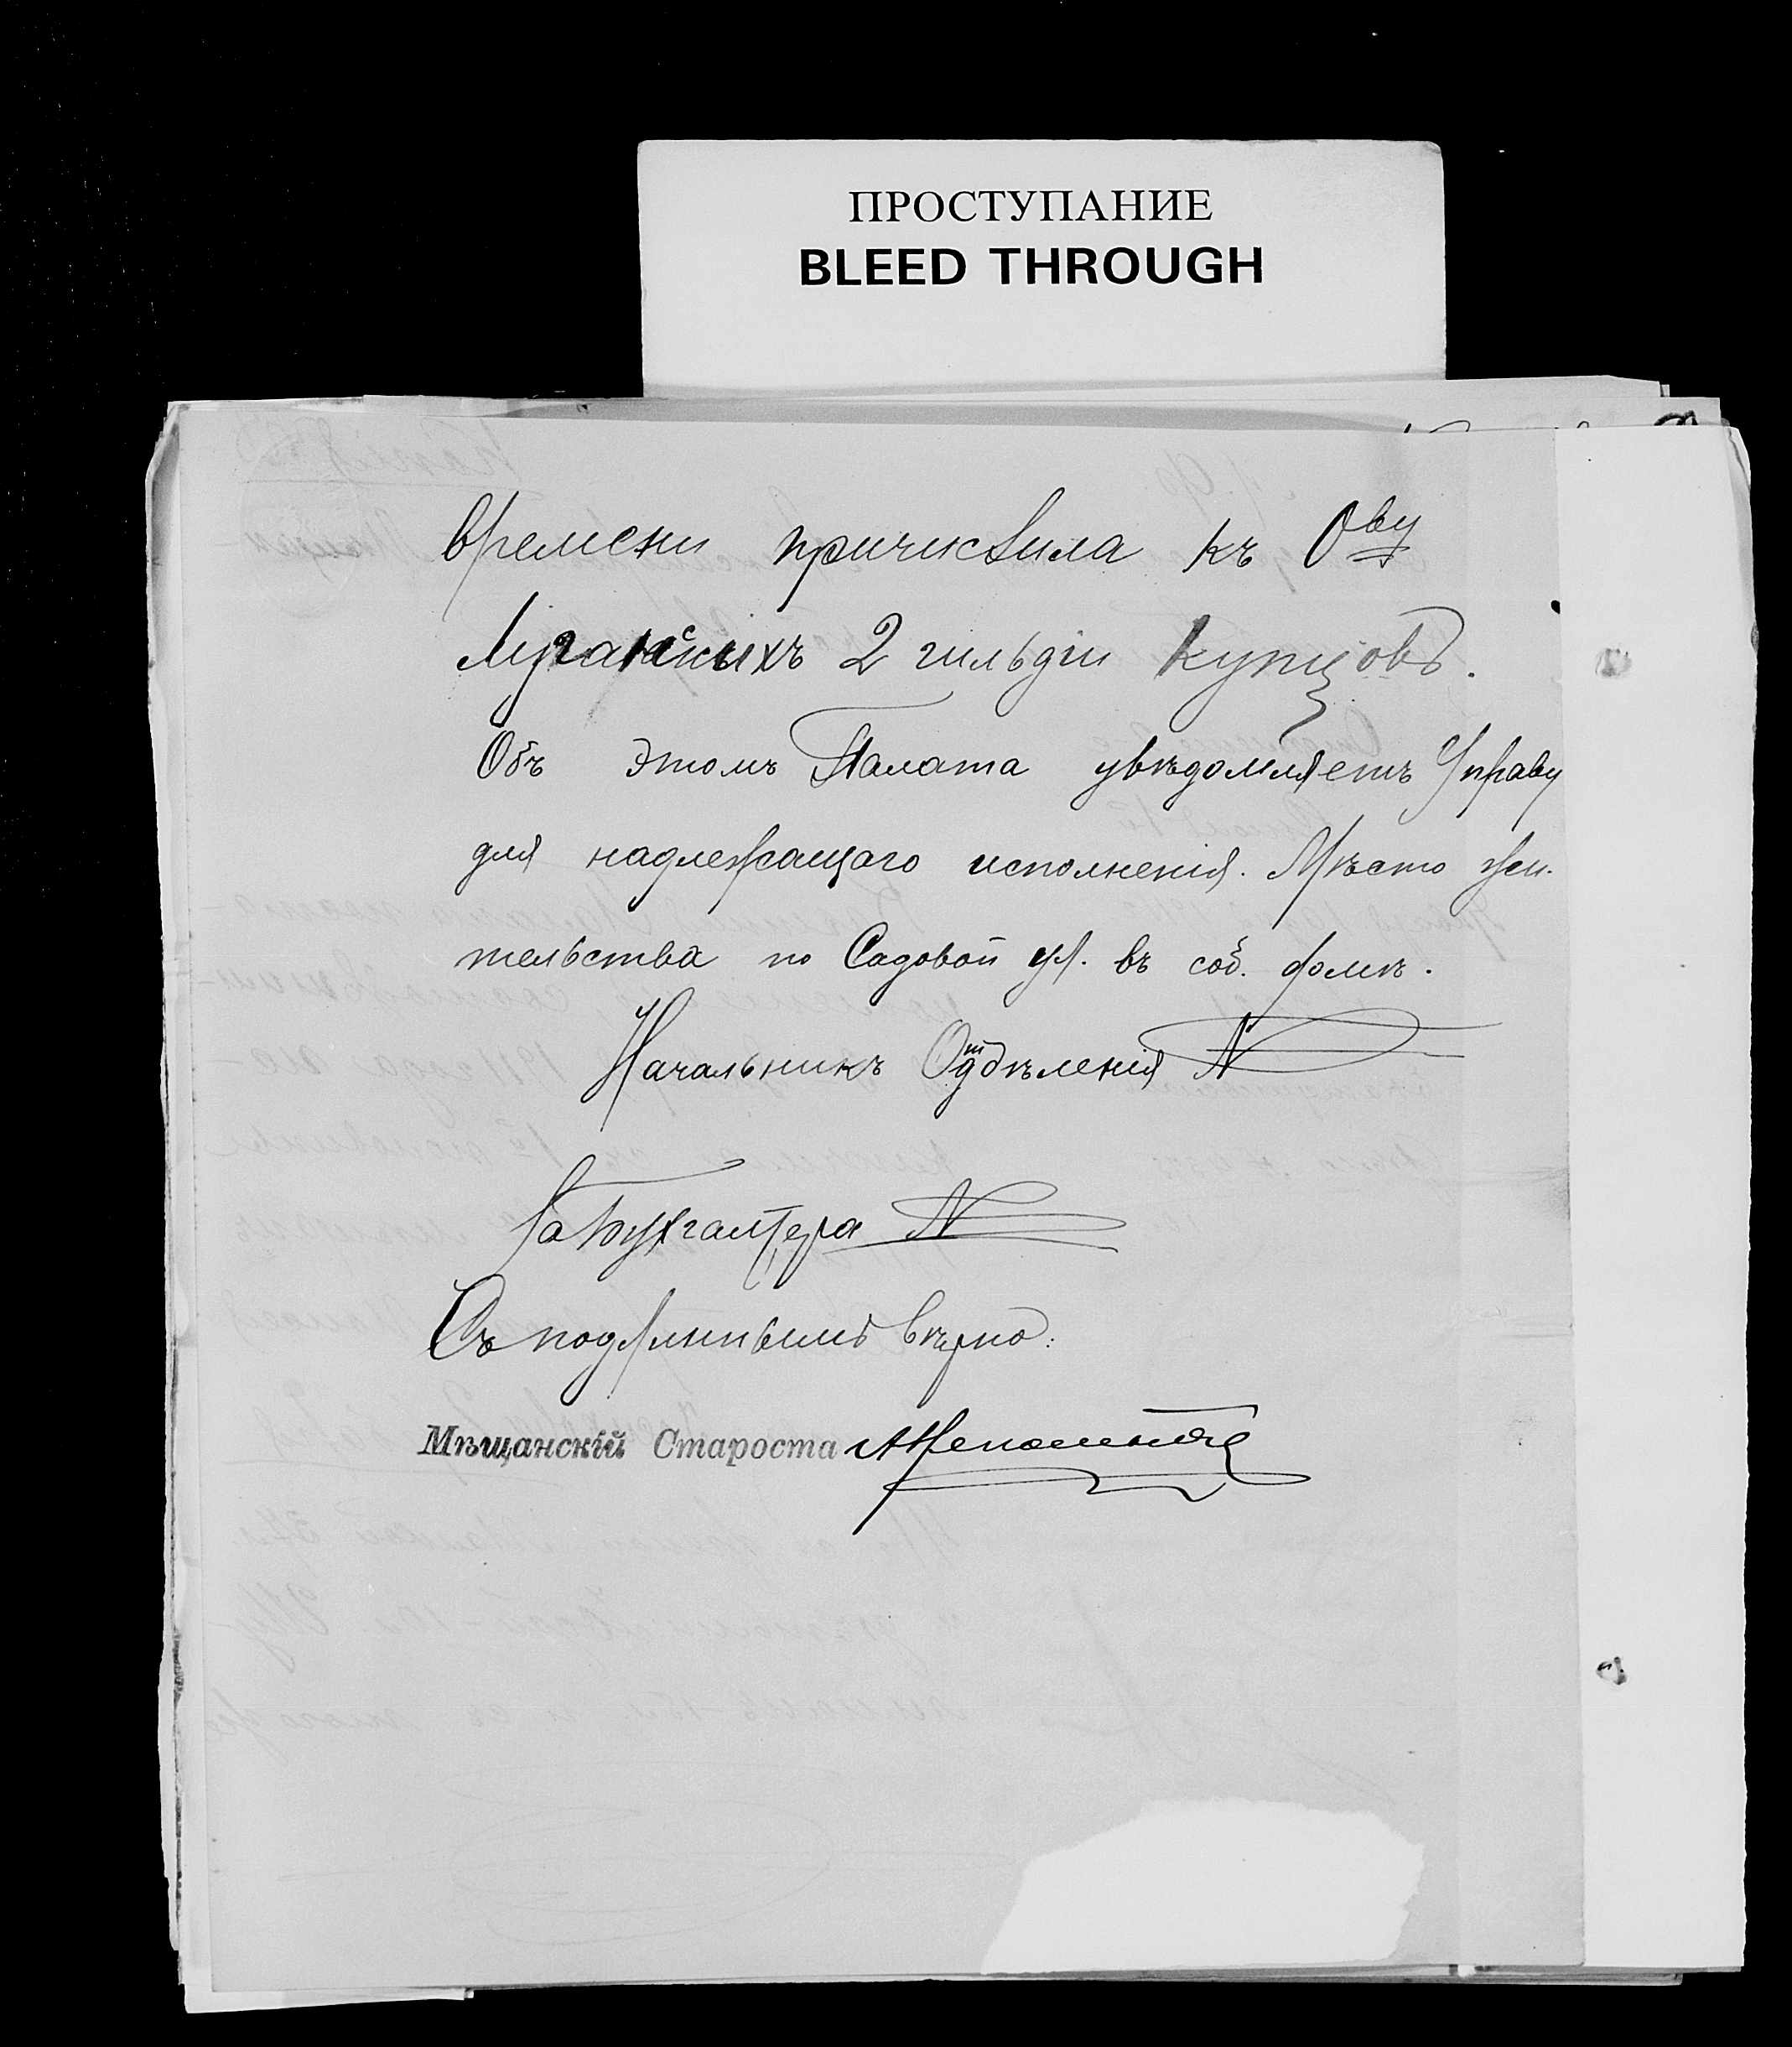 ПРОСТУПАНИЕ
BLEED THROUGH
времени причислила къ Ову
Луганскихъ 2 гильдіи купцовъ.
Объ этомъ Палата увѣдомляетъ Управу
для надлежащаго исполненія. Мѣсто жи-
тельства по Садовой ул. въ соб. домѣ.
Начальникъ Отдѣленія N
За Бухгалтера N
Съ подлиннымъ вѣрно:
Мѣщанскій Староста